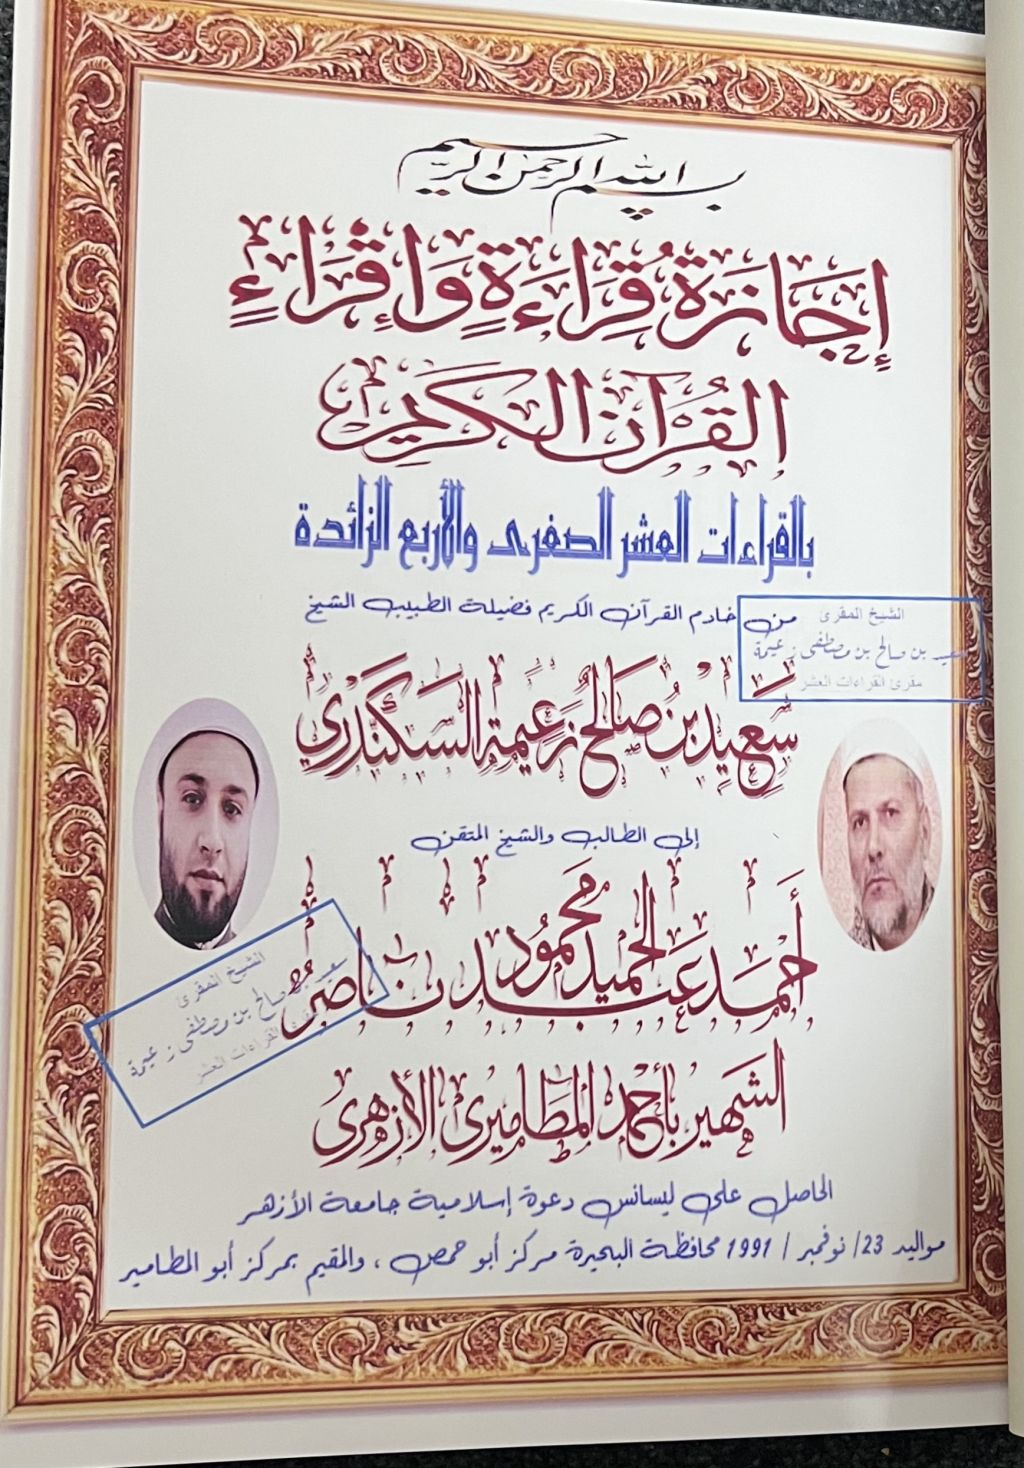 بسم الله الرحمن الرحيم
إِجَازَةُ قِرَاءَةٍ وَإِقْرَاءٍ
القُرْآن الكَرِيم
بالقراءات العشر الصغرى والأربع الزائدة
من خادم القرآن الكريم فضيلة الطبيب الشيخ
الشيخ المقرئ
سعيد بن صالح بن مصطفى زعيمة
مقرئ القراءات العشر
سَعِيد بن صَالح زعيمة السكندري
إلى الطالب والشيخ المتقن
أحمد عبد الحميد محمود ناصر
الشيخ المقرئ
سعيد بن صالح بن مصطفى زعيمة
مقرئ القراءات العشر
الشهير بأحمد المطاميرى الأزهرى
الحاصل على ليسانس دعوة إسلامية جامعة الأزهر
مواليد 23/ نوفمبر / 1991 محافظة البحيرة مركز أبو حمص ، والمقيم بمركز أبو المطامير